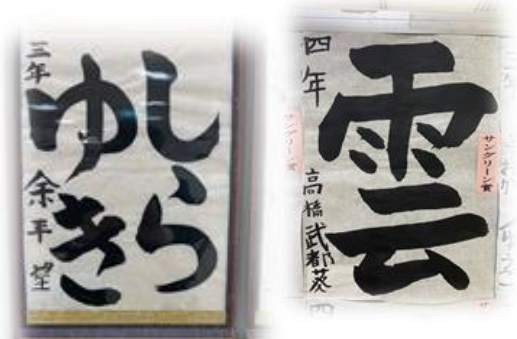 しら
ゆき
三年 余平望
雲
四年 高橋武都葵
サングリーン賞